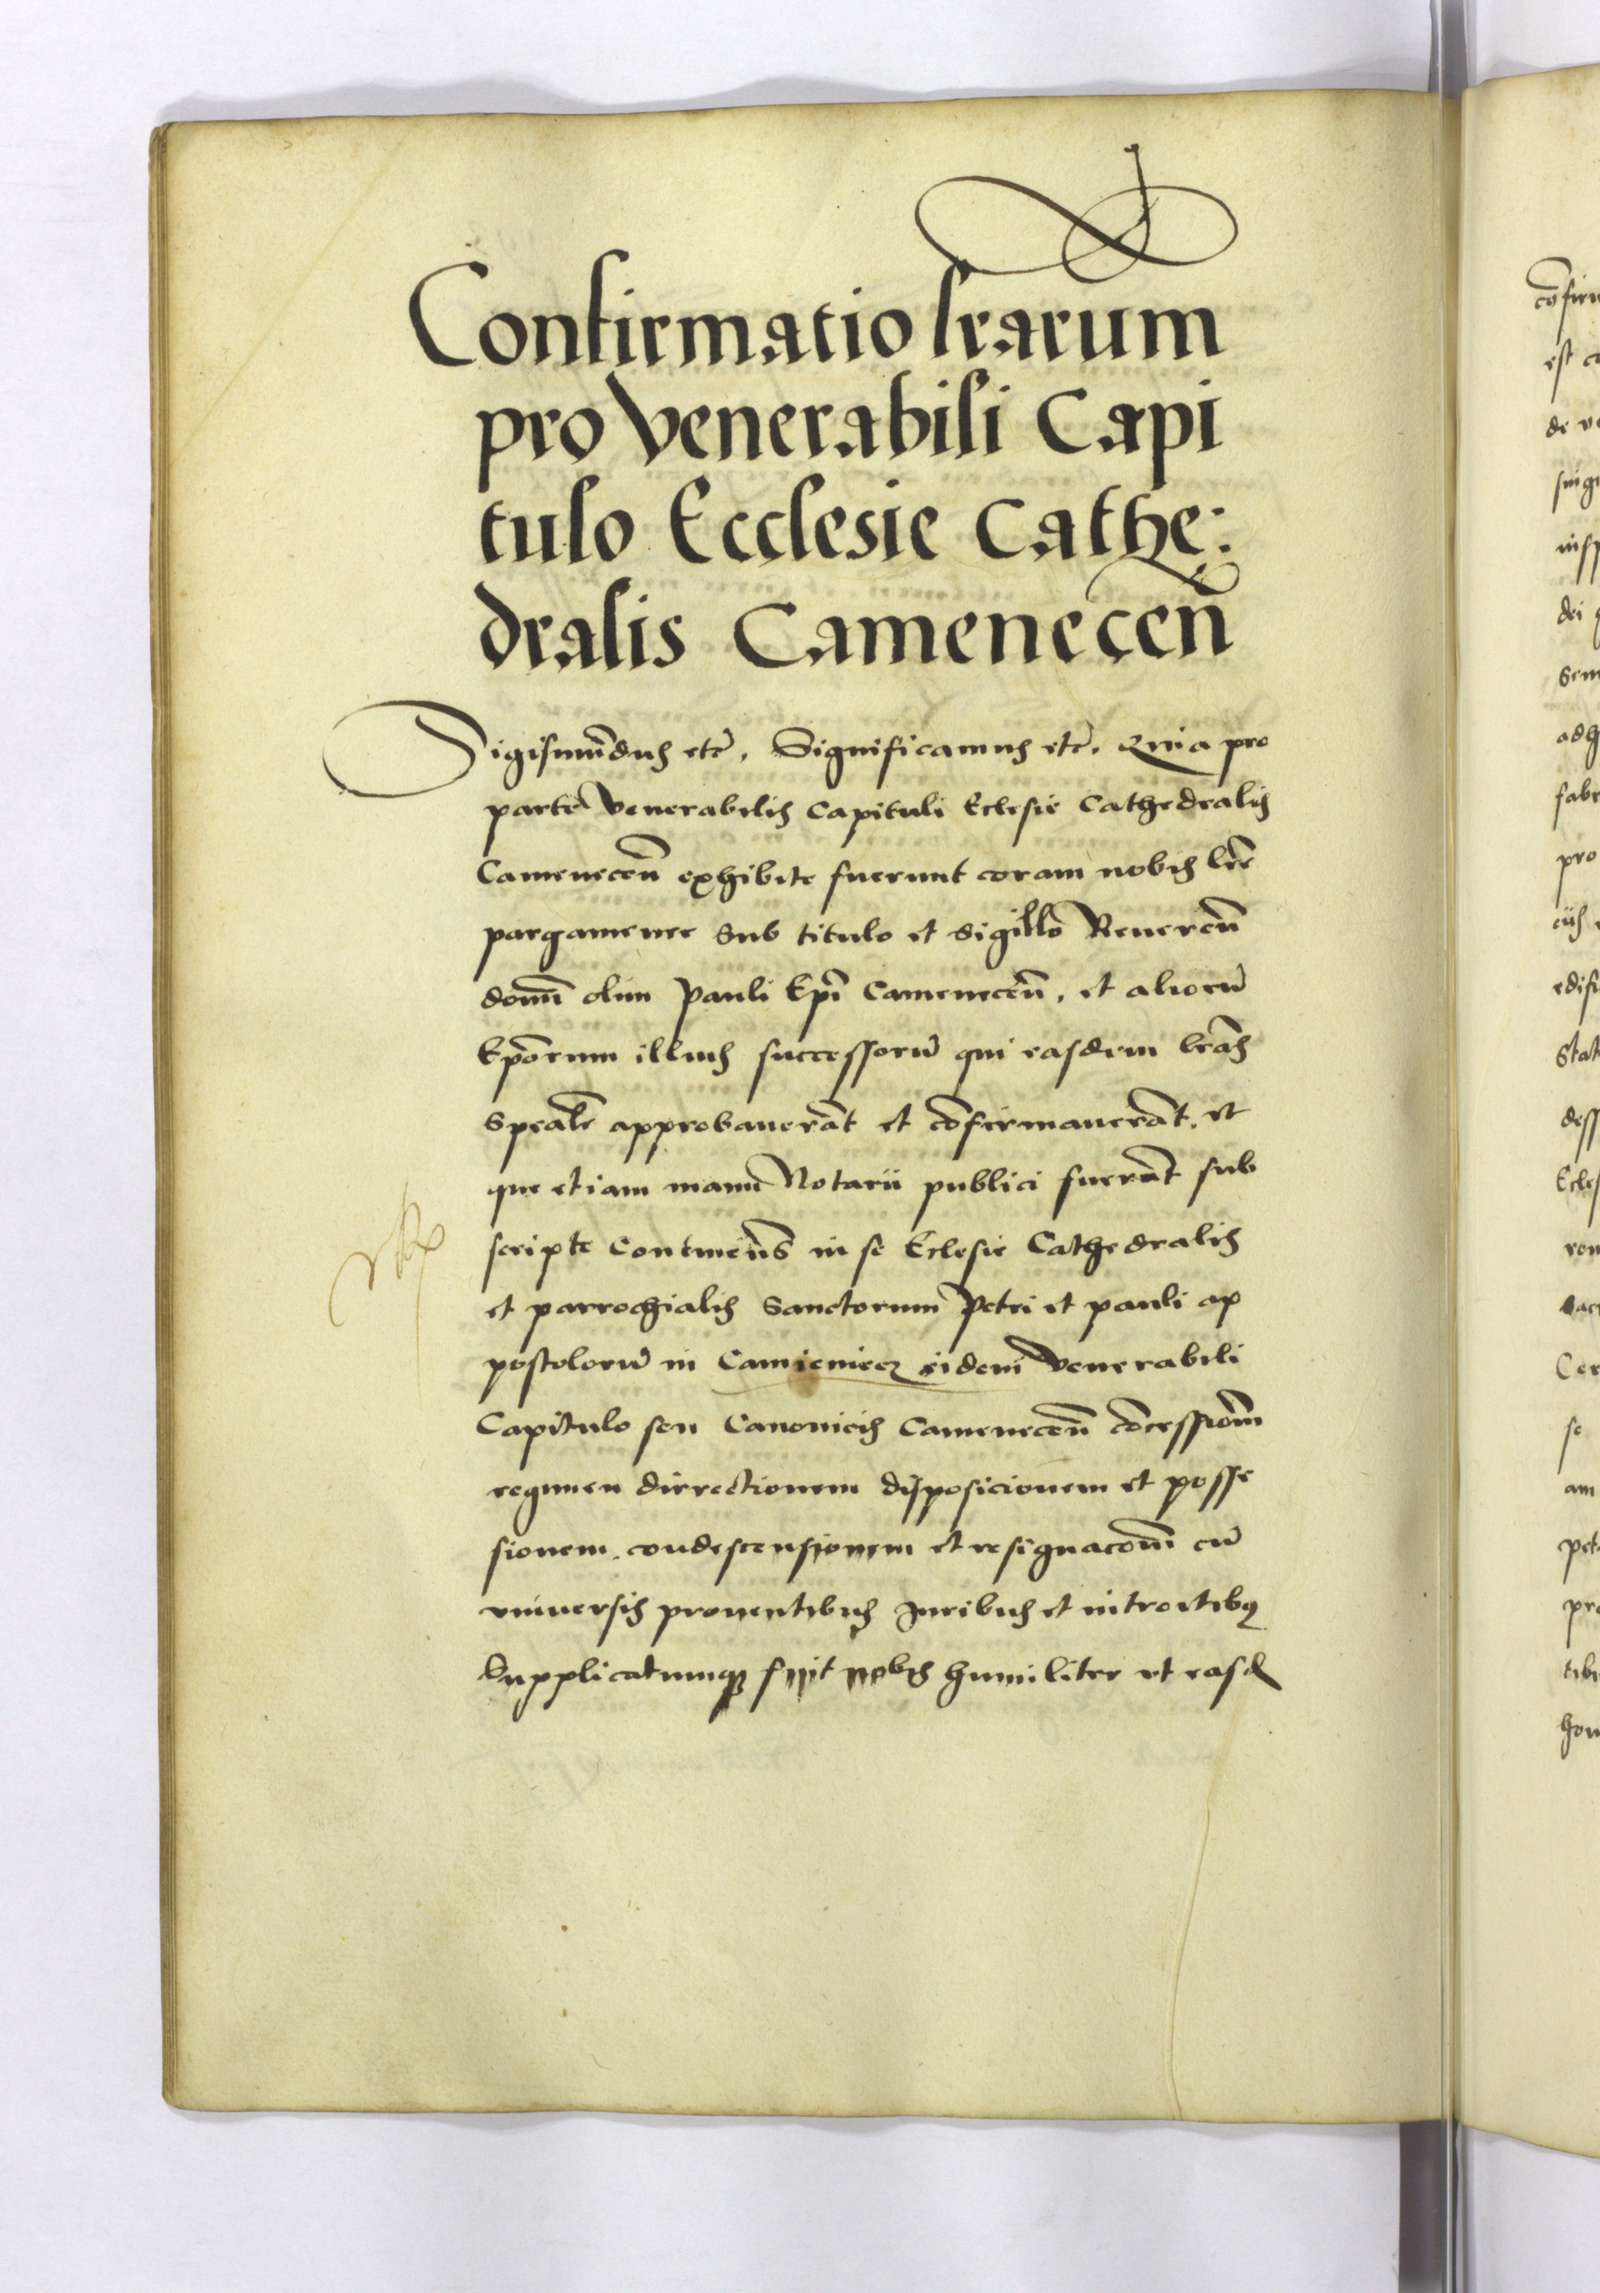 Confirmatio lrarum
pro Venerabili Capi
tulo Ecclesie Cathe:
dralis Camenecen̄
Sigismūdus etc̄. Significamus etc̄. Quia pro
parte Venerabilis Capituli Eclesie Cathedralis
Camenecen̄ exhibite fuerunt coram nobis lrē
pargamenee sub titulo et sigillo Reueren̄
domn̄i olim Pauli Epī Camenecen̄, et aliorū
Epōrum illius successorū qui easdem lrās
approbauerāt et cōfirmauerāt, et
que etiam manu Notarii publici fuerāt sub
scripte Contineñs in se Eclesie Cathedralis
et parrochialis Sanctorum Petri et pauli ap
postolorū in Camieniecz eidem Venerabili
Capitulo seu Canonicis Camenecen̄ cōcessionē
regimen dirrectionem disposicionem et posse
sionem, condescensionem et resignacōnē cū
vniuersis prouentibus Juribus et introitibus
Supplicatumque fuit nobis humiliter vt easd
cōfirm
est co
de ve
sing
insp
dei
sem
adh
fabr
pro
cūs
edifi
Stat
dess
Ecles
ron
Cer
se
am
pet
pro
tibu
hon